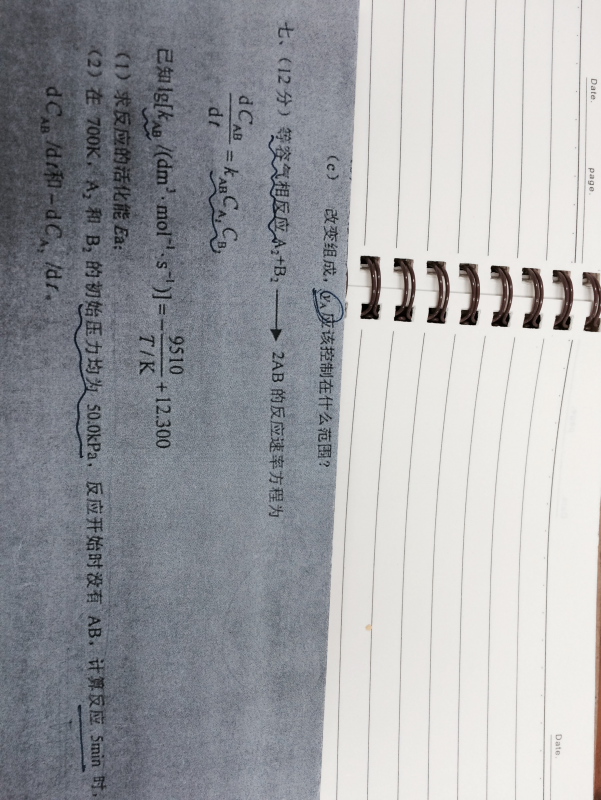 Date.
page.
Date.
(c) 改变组成，y_A 应该控制在什么范围？
七、(12 分) 等容气相反应 A₂+B₂ ⟶ 2AB 的反应速率方程为
dC_AB/dt = k_AB C_A₂ C_B₂
已知 lg[k_AB /(dm³·mol⁻¹·s⁻¹)] = −9510/(T/K) + 12.300
(1) 求反应的活化能 Ea;
(2) 在 700K，A₂ 和 B₂ 的初始压力均为 50.0kPa，反应开始时没有 AB，计算反应 5min 时，
dC_AB /dt 和 −dC_A₂ /dt。